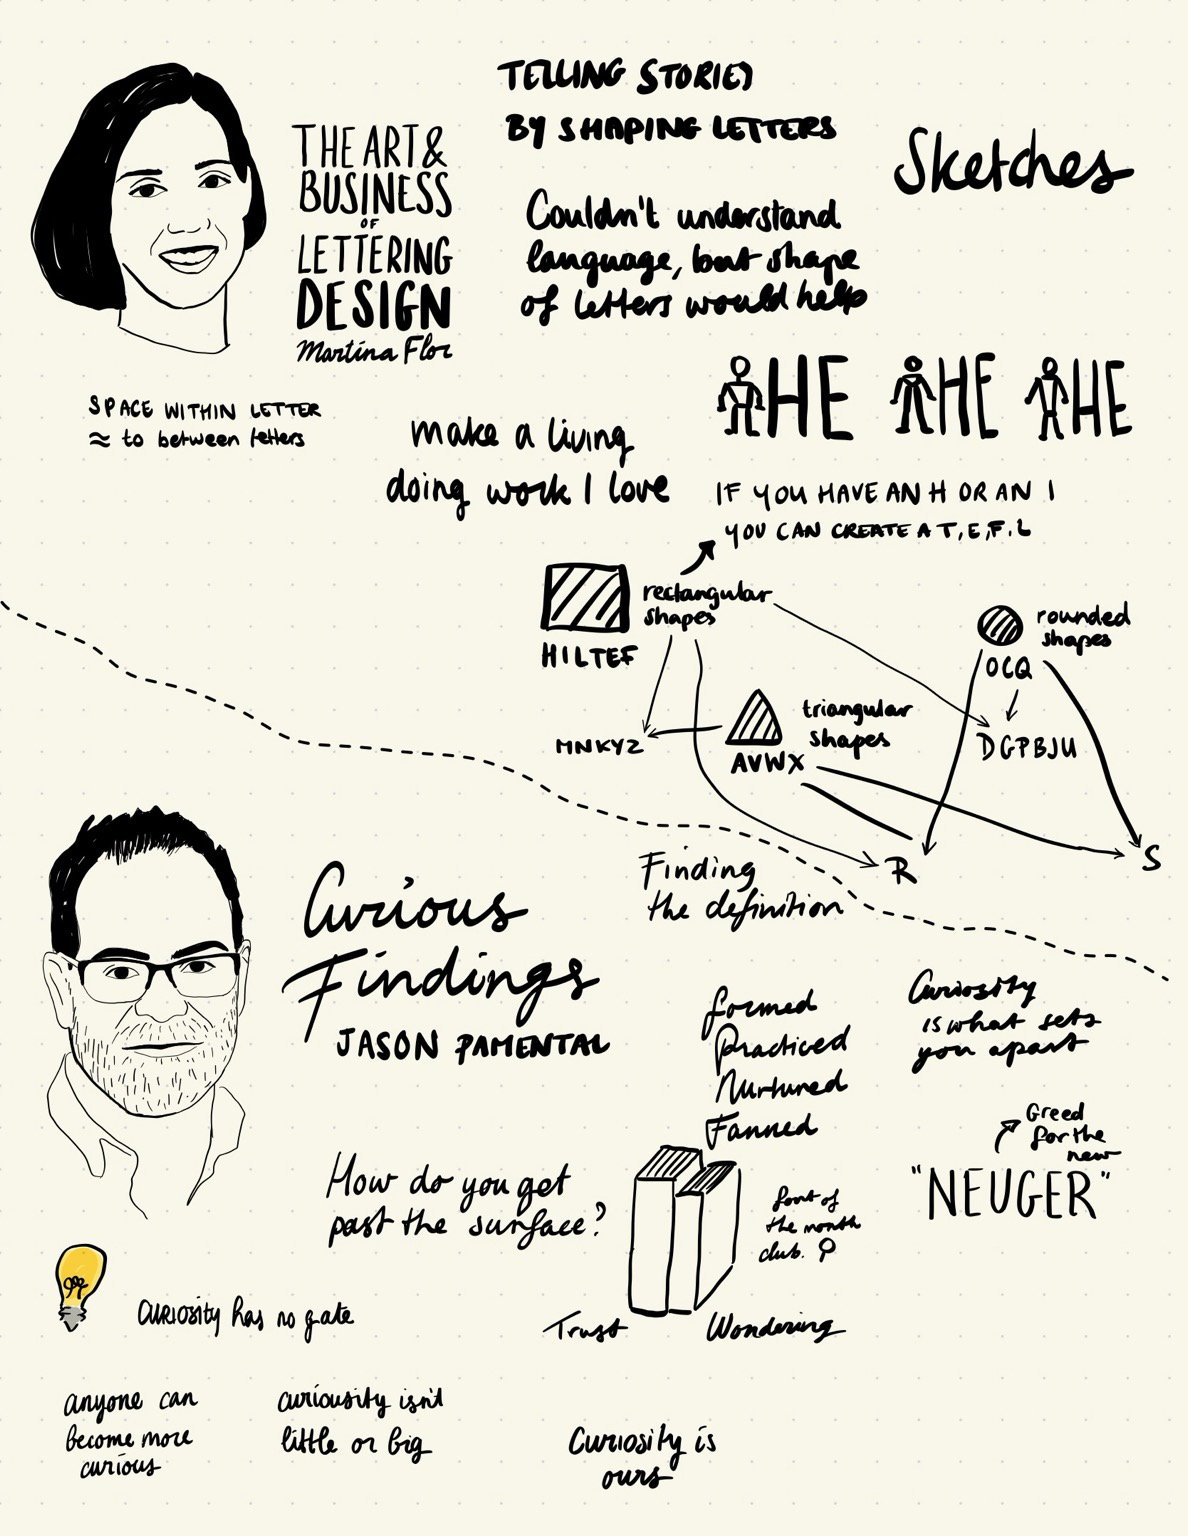 TELLING STORIES
BY SHAPING LETTERS
Sketches
THE ART &
BUSINESS
OF
LETTERING
DESIGN
Martina Flor
Couldn't understand
language, but shape
of letters would help
SPACE WITHIN LETTER
≈ to between letters
make a living
doing work I love
HE HE HE
IF YOU HAVE AN H OR AN I
YOU CAN CREATE A T, E, F, L
rectangular
shapes
HILTEF
rounded
shapes
OCQ
triangular
shapes
AVWX
MNKYZ
DGPBJU
R
S
Curious
Findings
JASON PAMENTAL
Finding
the definition
formed
Practiced
Nurtured
Fanned
Curiosity
is what sets
you apart
Greed
for the
new
"NEUGER"
How do you get
past the surface?
font of
the month
club.
Trust
Wondering
Curiosity has no gate
anyone can
become more
curious
curiousity isn't
little or big
Curiosity is
ours